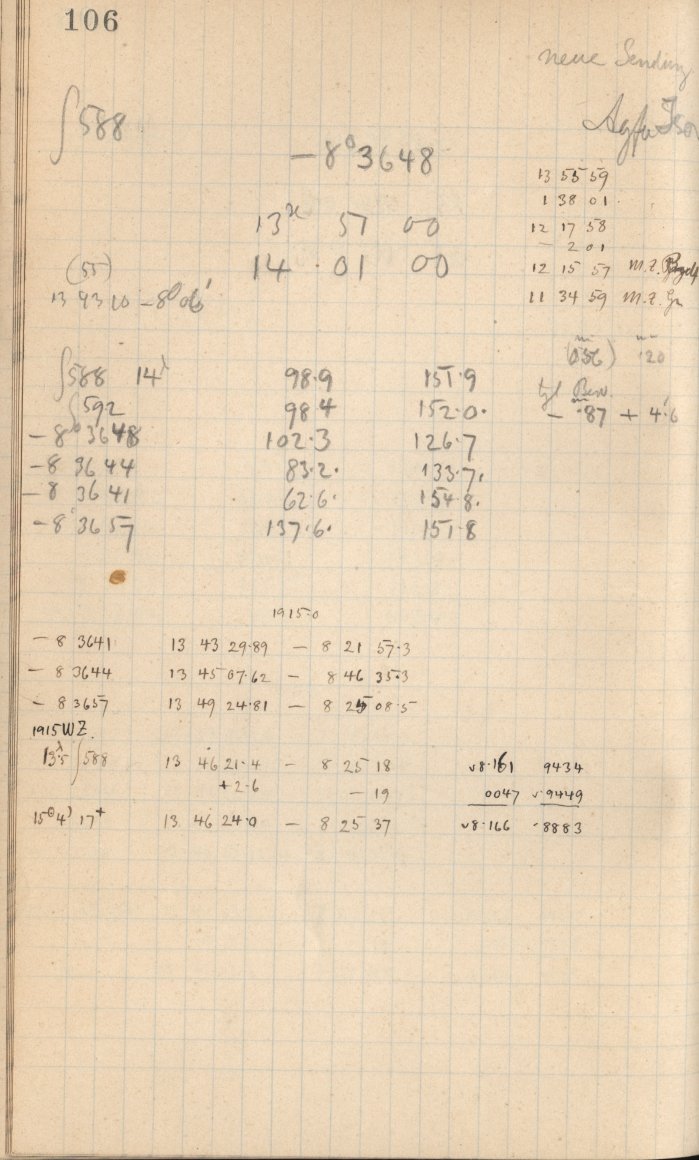 106
neue Sendung
∫588
Agfa Iso
− 8° 3648
13 55 59
1 38 01
13 57 00
12 17 58
− 2 01
(55)
14 · 01 00
12 15 57 M.Z.
13 43 10 − 8° 06'
11 34 59 M.Z. Gr
(056) 120
∫588 14 98.9 151.9
tgl Bew.
∫592 98.4 152.0.
− .87 + 4.6
− 8° 3648 102.3 126.7
− 8 3644 83.2. 133.7.
− 8 3641 62.6. 154.8.
− 8 3657 137.6. 151.8
1915.0
− 8 3641 13 43 29.89 − 8 21 57.3
− 8 3644 13 45 07.62 − 8 46 35.3
− 8 3657 13 49 24.81 − 8 25 08.5
1915 WZ.
13.5 ∫588 13 46 21.4 − 8 25 18 8.161 9434
+ 2.6 − 19 0047 .9449
15 4 17 13 46 24.0 − 8 25 37 8.166 .8883